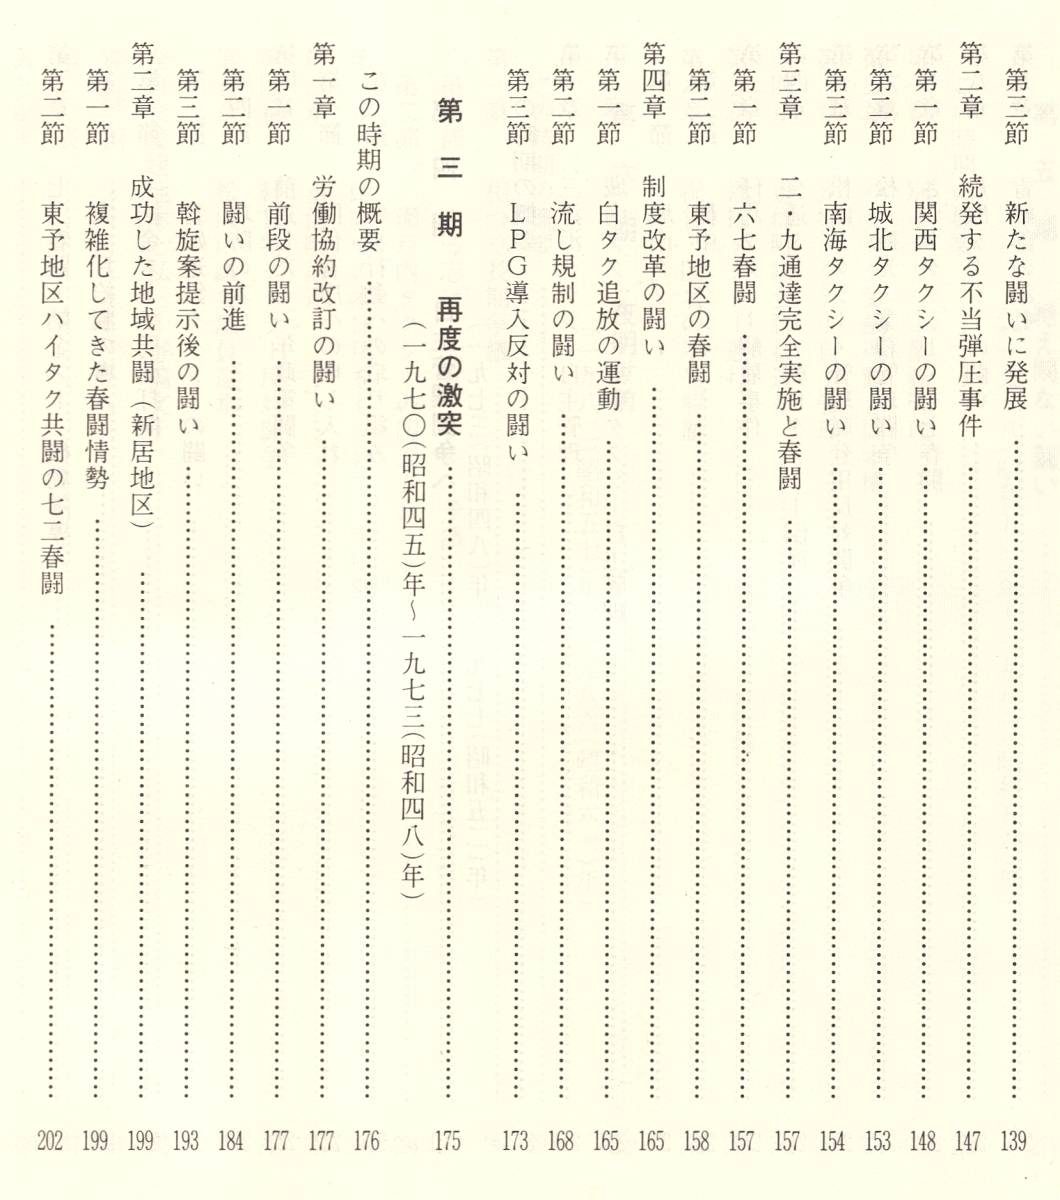 第三節 新たな闘いに発展……139
第二章 続発する不当弾圧事件……147
第一節 関西タクシーの闘い……148
第二節 城北タクシーの闘い……153
第三節 南海タクシーの闘い……154
第三章 二・九通達完全実施と春闘……157
第一節 六七春闘……157
第二節 東予地区の春闘……158
第四章 制度改革の闘い……165
第一節 白タク追放の運動……165
第二節 流し規制の闘い……168
第三節 LPG導入反対の闘い……173
第三期 再度の激突……175
(一九七〇(昭和四五)年〜一九七三(昭和四八)年)
この時期の概要……176
第一章 労働協約改訂の闘い……177
第一節 前段の闘い……177
第二節 闘いの前進……184
第三節 斡旋案提示後の闘い……193
第二章 成功した地域共闘(新居地区)……199
第一節 複雑化してきた春闘情勢……199
第二節 東予地区ハイタク共闘の七二春闘……202